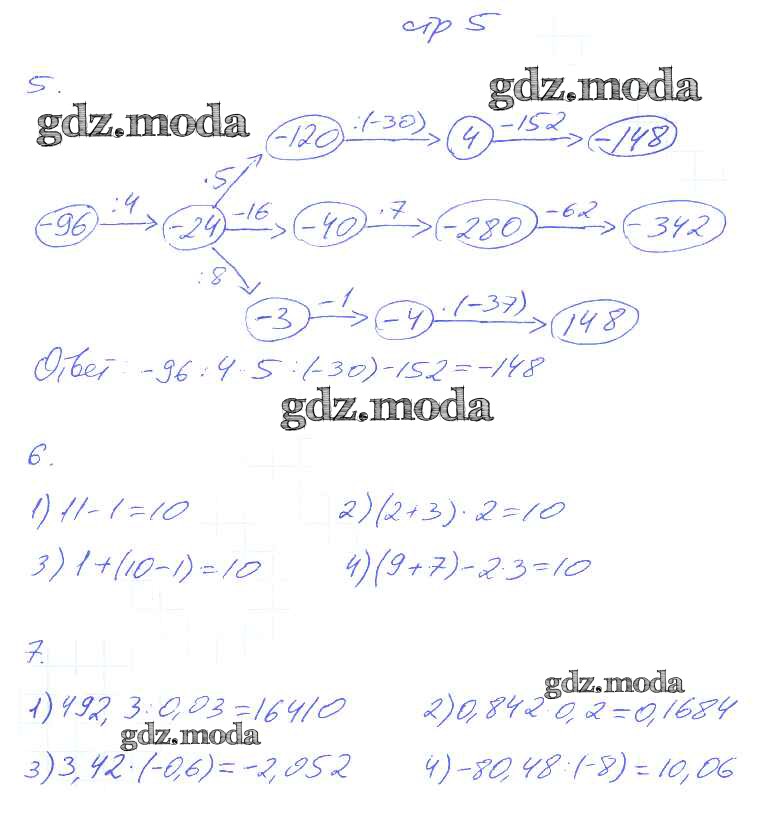 стр 5
5.
gdz.moda
gdz.moda
-120 :(-30) 4 -152 -148
·5
-96 :4 -24 -16 -40 ·7 -280 -62 -342
:8
-3 -1 -4 ·(-37) 148
Ответ: -96:4·5:(-30)-152=-148
gdz.moda
6.
1) 11-1=10 2) (2+3)·2=10
3) 1+(10-1)=10 4) (9+7)-2·3=10
7.
gdz.moda
1) 492,3:0,03=16410 2) 0,842·0,2=0,1684
gdz.moda
3) 3,42·(-0,6)=-2,052 4) -80,48:(-8)=10,06